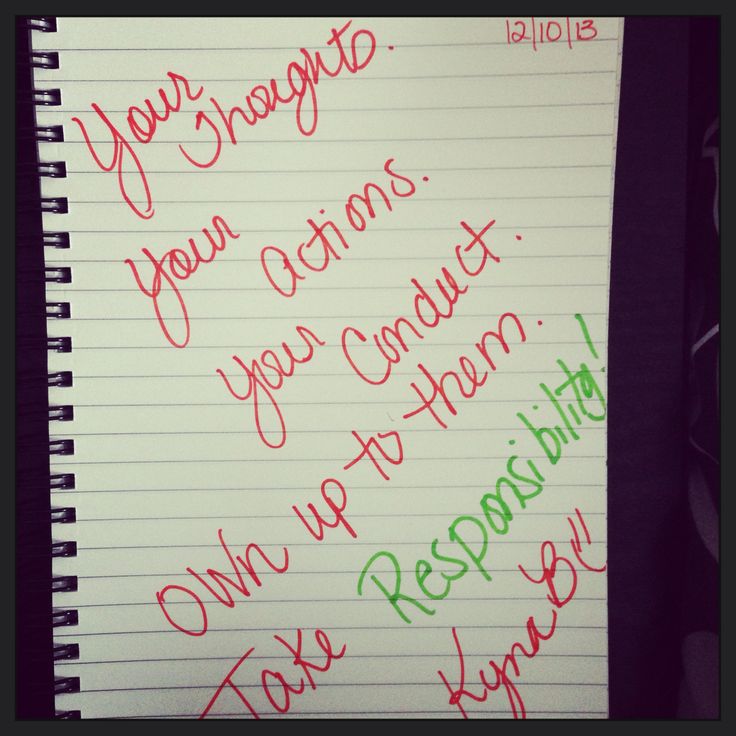 12/10/13
Your Thoughts.
Your actions.
Your Conduct.
Own up to them.
Take Responsibility!
Kyna B